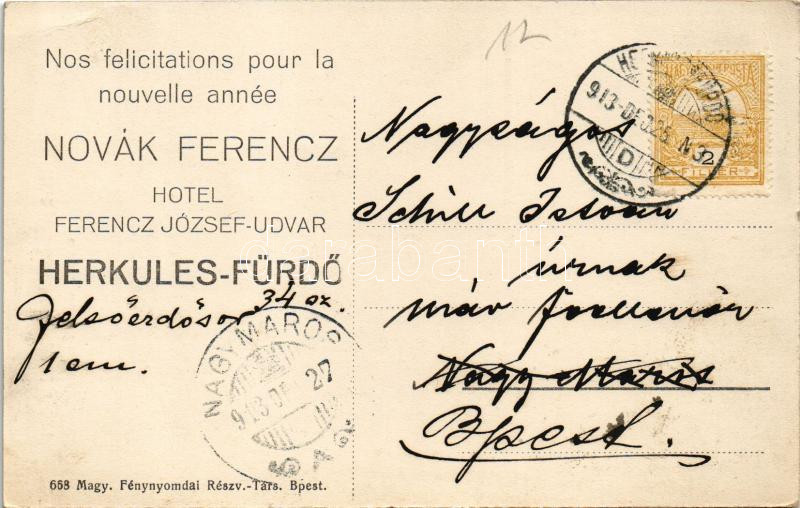 Nos felicitations pour la
nouvelle année
NOVÁK FERENCZ
HOTEL
FERENCZ JÓZSEF-UDVAR
HERKULES-FÜRDŐ
Felsőerdősor 34 sz.
1 em.
NAGYMAROS
913 DE 27
658 Magy. Fénynyomdai Részv.-Társ. Bpest.
12
913-DEC.26 N3
D
2
FILLÉR
Nagyságos
Schill István
úrnak
máv
Nagy Maros
Bpest.
darabanth